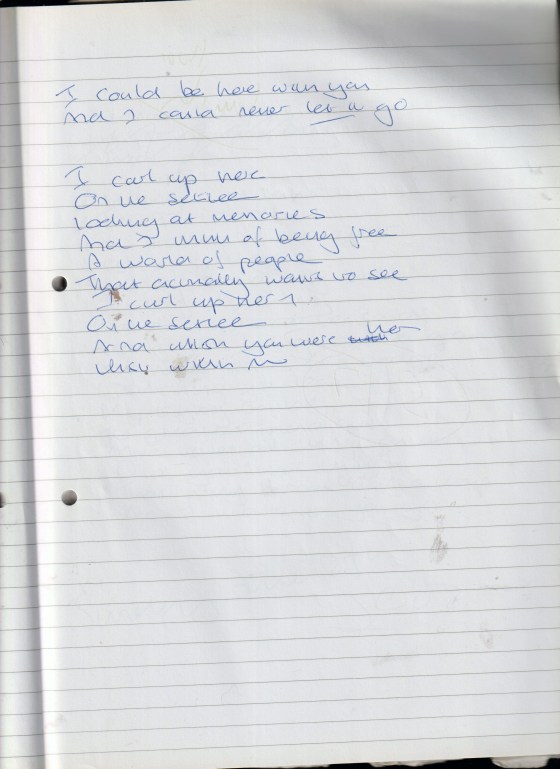 I could be here with you
And I could never let it go
I curl up here
On the settee
looking at memories
And I think of being free
A world of people
That actually wants to see
I curl up here
On the settee
And wish you were here
with me